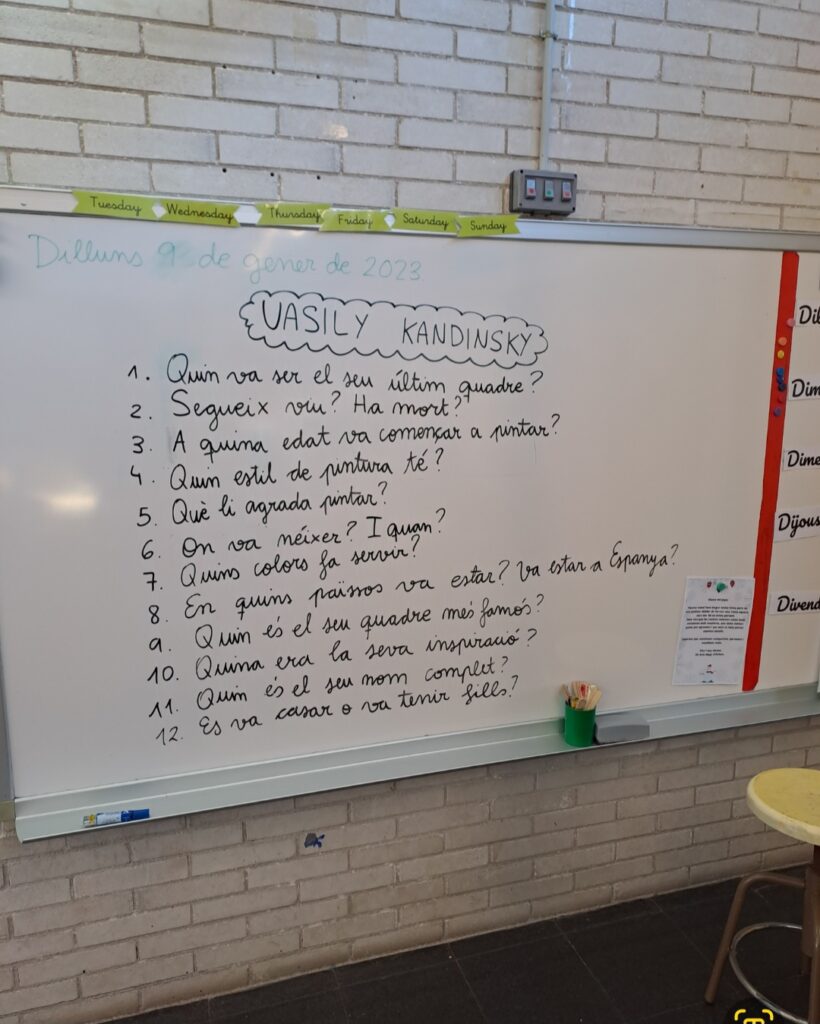 Tuesday Wednesday Thursday Friday Saturday Sunday
Dilluns 9 de gener de 2023
VASILY KANDINSKY
1. Quin va ser el seu últim quadre?
2. Segueix viu? Ha mort?
3. A quina edat va començar a pintar?
4. Quin estil de pintura té?
5. Què li agrada pintar?
6. On va néixer? I quan?
7. Quins colors fa servir?
8. En quins països va estar? Va estar a Espanya?
9. Quin és el seu quadre més famós?
10. Quina era la seva inspiració?
11. Quin és el seu nom complet?
12. Es va casar o va tenir fills?
Dil
Dim
Dime
Dijous
Divend